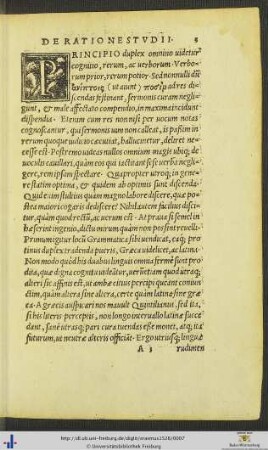 DE RATIONE STVDII.
PRINCIPIO duplex omnino uidetur
cognitio, rerum, ac uerborum. Verbo-
rum prior, rerum potior. Sed nonnulli dũ
ἀνίπτοις (ut aiunt) ποσὶν ad res di-
scendas festinant, sermonis curam negli-
gunt, & male affectato compendio, in maxima incidunt
dispendia. Etenim cum res non nisi per uocum notas
cognoscantur, qui sermonis uim non calleat, is passim in
rerum quoque iudicio cæcutiat, hallucinetur, deliret ne-
cesse est. Postremo uideas nullos omnium magis ubiq; de
uoculis cauillari, quàm eos qui iactitant sese uerba negli-
gere, rem ipsam spectare. Quapropter utroq; in gene-
re statim optima, & quidem ab optimis sunt discenda.
Quid enim stultius quàm magno labore discere, quæ po-
stea maiori cogaris dediscere? Nihil autem facilius disci-
tur, quàm quod rectũ, ac uerum est. At praua si semel in-
hæserint ingenio, dictu mirum quàm non possent reuelli.
Primum igitur locũ Grammatica sibi uendicat, eaq; pro
tinus duplex tradenda pueris, Græca uidelicet, ac latina.
Non modo quòd his duabus linguis omnia fermè sunt pro
dita, quæ digna cognitu uideãtur, uerũetiam quòd utraq;
alteri sic affinis est, ut ambæ citius percipi queant coniun
ctim, quàm altera sine altera, certè quàm latina sine græ
ca. A græcis auspicari nos mauult Quintilianus, sed ita,
si his literis perceptis, non longo interuallo latinæ succe
dant, sanè utrasq; pari cura tuendas esse monet, atq; ita
futurum, ut neutræ alteris officiãt. Ergo utriusq; linguæ
A 3 rudimen
http://dl.ub.uni-freiburg.de/diglit/erasmus1528/0007
© Universitätsbibliothek Freiburg